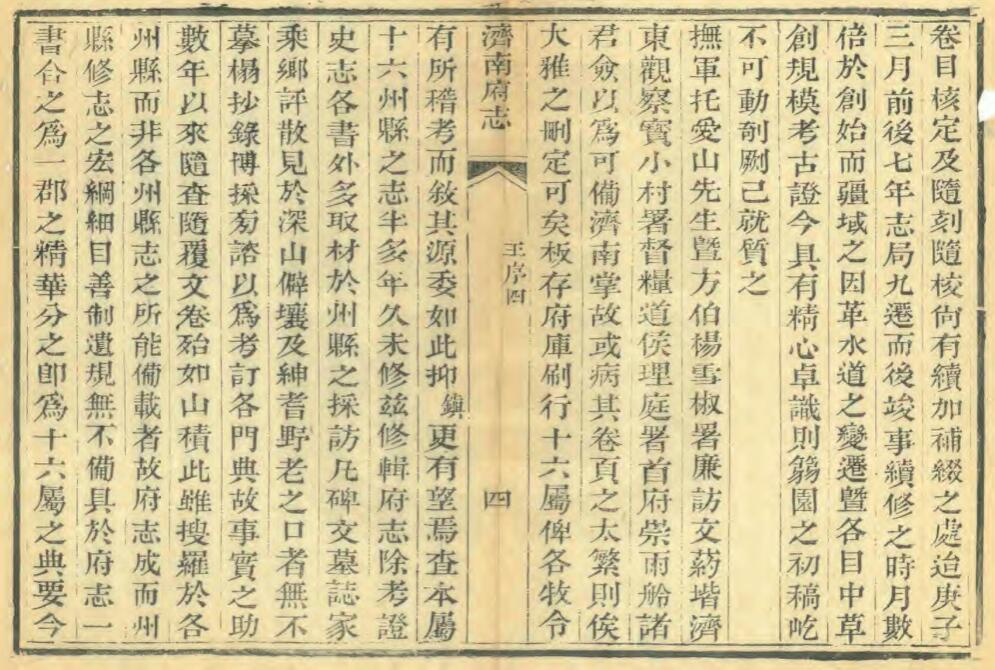 卷目核定及隨刻隨校尙有續加補綴之處迨庚子
三月前後七年志局九遷而後竣事續修之時月數
倍於創始而疆域之因革水道之變遷曁各目中草
創規模考古證今具有精心卓識則篛園之初稿屹
不可動剞劂已就質之
撫軍托愛山先生曁方伯楊雪椒署廉訪文葯堦濟
東觀察寳小村署督糧道侯理庭署首府崇雨舲諸
君僉以爲可備濟南掌故或病其卷頁之太繁則俟
大雅之刪定可矣板存府庫刷行十六屬俾各牧令
濟南府志
王序四
四
有所稽考而敘其源委如此抑鎮更有望焉查本屬
十六州縣之志半多年久未修茲修輯府志除考證
史志各書外多取材於州縣之採訪凡碑文墓誌家
乘鄉評散見於深山僻壤及紳耆野老之口者無不
摹榻抄錄博採旁諮以爲考訂各門典故事實之助
數年以來隨查隨覆文卷殆如山積此雖搜羅於各
州縣而非各州縣志之所能備載者故府志成而州
縣修志之宏綱細目善制遺規無不備具於府志一
書合之爲一郡之精華分之卽爲十六屬之典要今